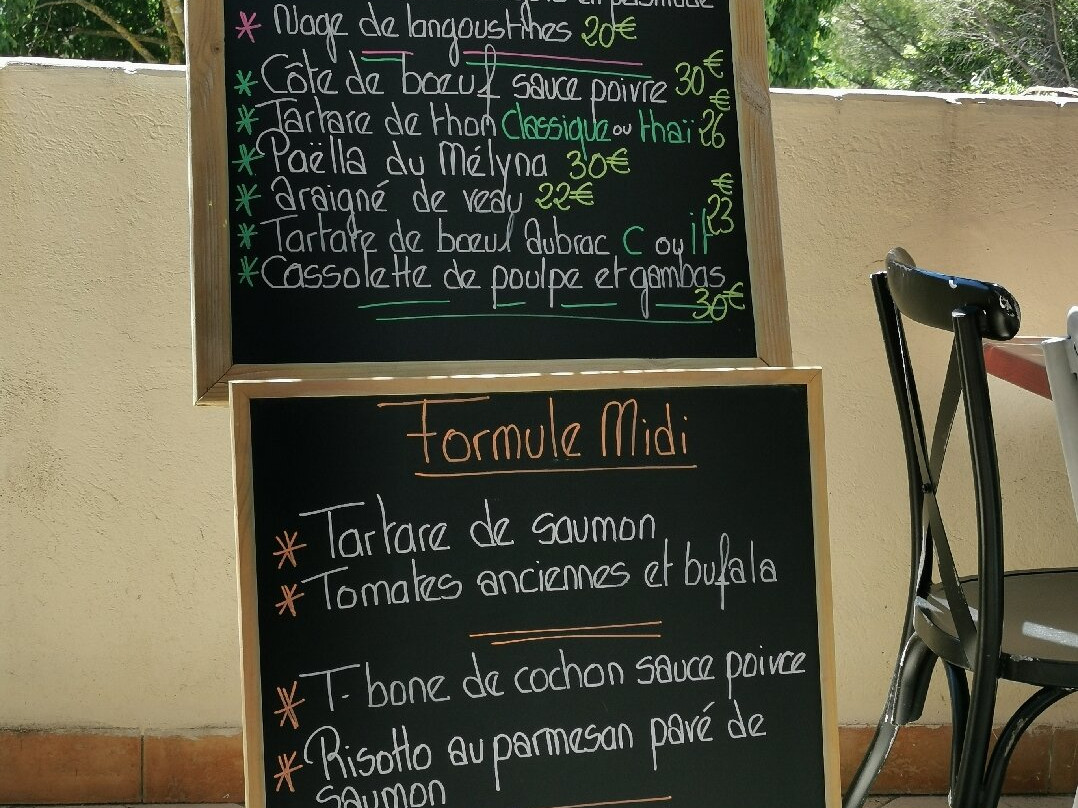 * Nage de langoustines 20€
* Côte de bœuf sauce poivre 30€
* Tartare de thon classique ou thaï 26€
* Paëlla du Mélyna 30€
* araigné de veau 22€
* Tartare de bœuf Aubrac C ou it 23€
* Cassolette de poulpe et gambas 30€
Formule Midi
* Tartare de saumon
* Tomates anciennes et bufala
* T-bone de cochon sauce poivre
* Risotto au parmesan pavé de
saumon